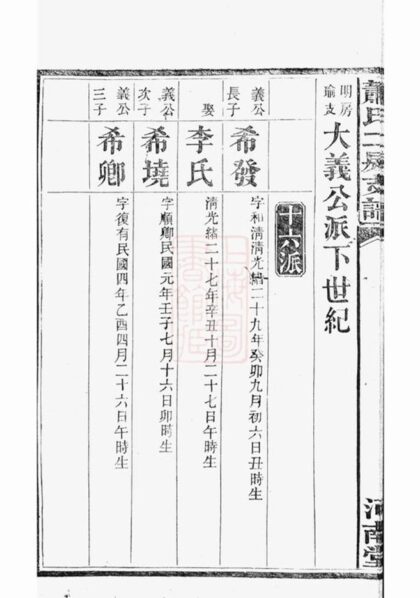 河南堂
明房
瑜支
大義公派下世紀
十六派
義公
長子
希發
字和清清光緒二十九年癸卯九月初六日丑時生
娶
李氏
清光緒二十七年辛丑十月二十七日午時生
義公
次子
希墝
字順卿民國元年壬子七月十六日卯時生
義公
三子
希卿
字復有民國四年乙酉四月二十六日午時生